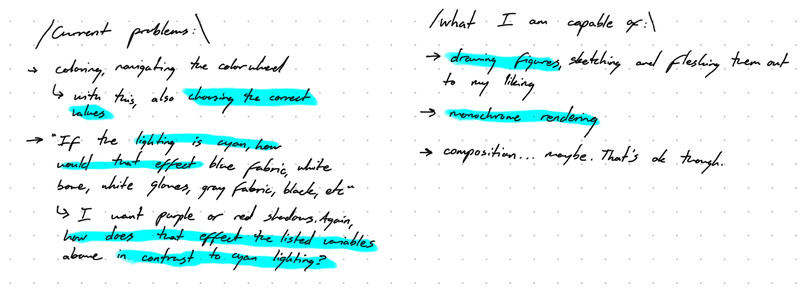 /Current problems:\
→ coloring, navigating the colorwheel
↳ with this, also choosing the correct
values
→ "If the lighting is cyan, how
would that effect blue fabric, white
bone, white gloves, gray fabric, black, etc"
↳ I want purple or red shadows. Again,
how does that effect the listed variables
above in contrast to cyan lighting?
/what I am capable of:\
→ drawing figures, sketching and fleshing them out
to my liking
→ monochrome rendering
→ composition... maybe. That's ok though.